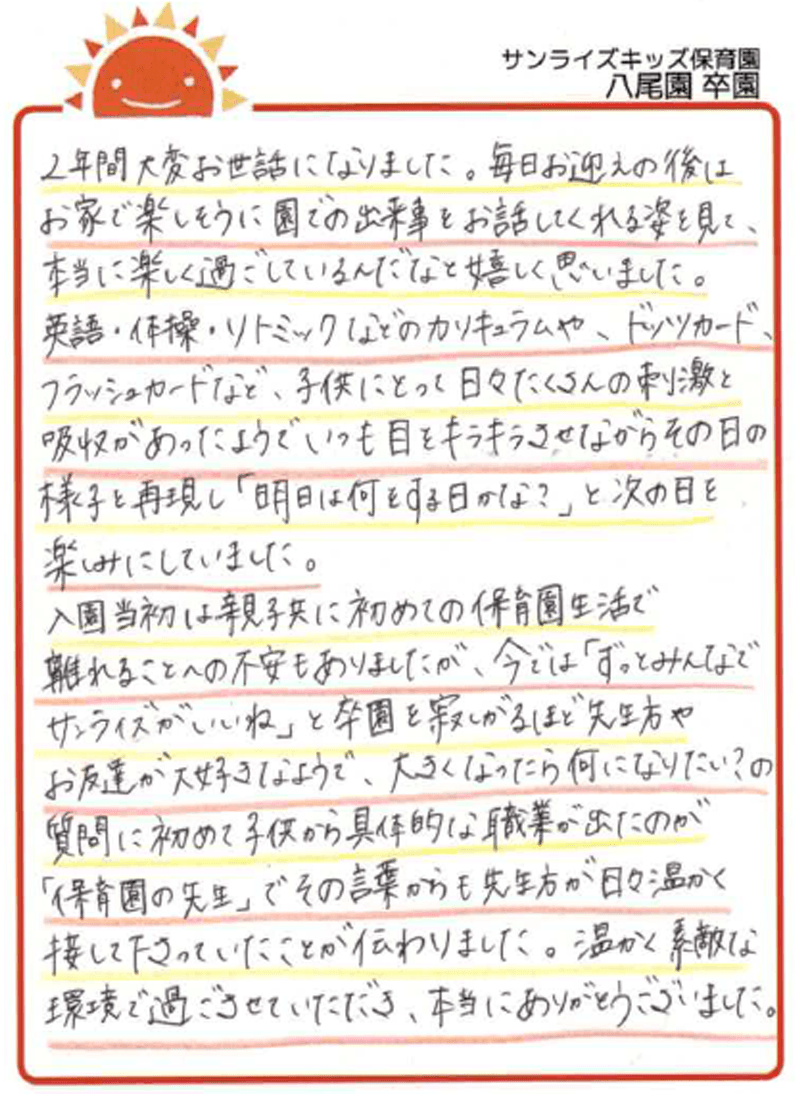 サンライズキッズ保育園
八尾園 卒園
2年間大変お世話になりました。毎日お迎えの後は
お家で楽しそうに園での出来事をお話してくれる姿を見て、
本当に楽しく過ごしているんだなと嬉しく思いました。
英語・体操・リトミックなどのカリキュラムや、ドッツカード、
フラッシュカードなど、子供にとって日々たくさんの刺激と
吸収があったようでいつも目をキラキラさせながらその日の
様子を再現し「明日は何をする日かな?」と次の日を
楽しみにしていました。
入園当初は親子共に初めての保育園生活で
離れることへの不安もありましたが、今では「ずっとみんなで
サンライズがいいね」と卒園を寂しがるほど先生方や
お友達が大好きなようで、大きくなったら何になりたい?の
質問に初めて子供から具体的な職業が出たのが
「保育園の先生」でその言葉からも先生方が日々温かく
接して下さっていたことが伝わりました。温かく素敵な
環境で過ごさせていただき、本当にありがとうございました。